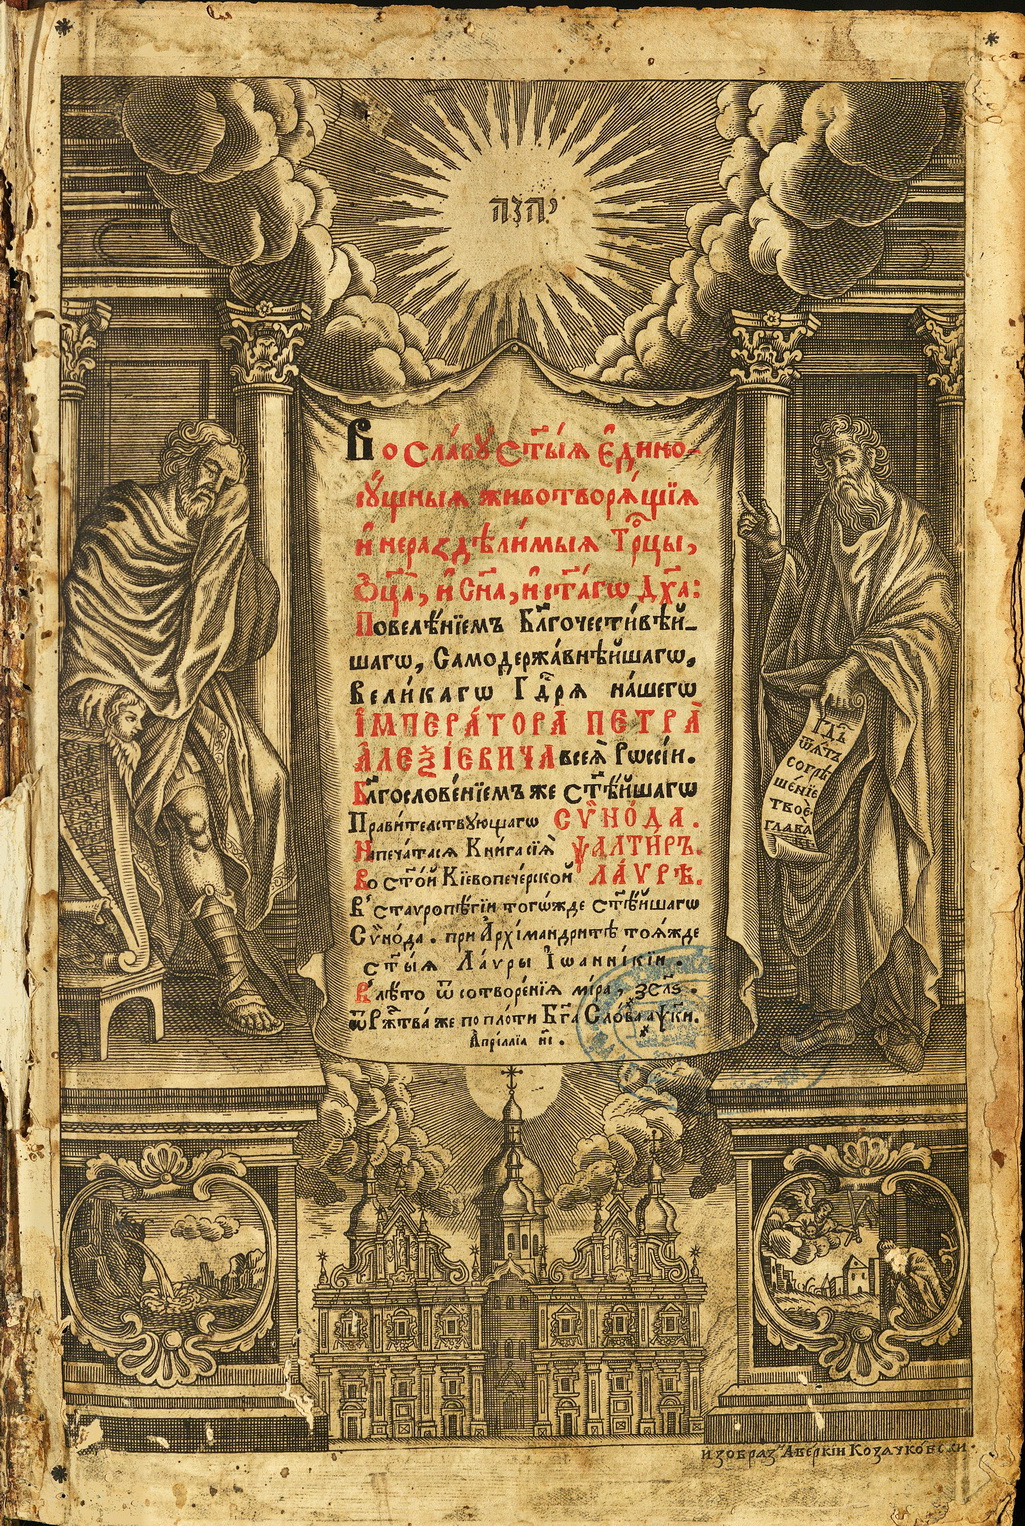 יהוה
Во Сла́вꙋ Ст҃ы́ѧ Є҆дино-
сꙋ́щныѧ животворѧ́щїѧ
и҆ нераздѣли́мыѧ Трⷪ҇цы,
Ѻ҆ц҃а̀, и҆ Сн҃а, и҆ ст҃а́гѡ Дх҃а:
Повелѣ́нїемъ Бл҃гочести́вѣй-
шагѡ, Самодержа́внѣйшагѡ,
Вели́кагѡ Гдⷭ҇рѧ на́шегѡ
І҆МПЕРА́ТОРА ПЕТРА̀
АЛЕѮІ́ЕВИЧА всеѧ̀ Рѡссі́и.
Бл҃гослове́нїемъ же Ст҃ѣ́йшагѡ
Прави́телствꙋющагѡ СѴ҆НО́ДА.
Напеча́тасѧ Книга сїѧ̀ ѰАЛТИ́РЬ.
Во ст҃о́й Кїевопече́рской ЛА́ѴРѢ.
В̾ Ставропѣ́гїи тогѡ́жде ст҃ѣ́йшагѡ
Сѵ҆но́да. при А҆рхїмандри́тѣ тоѧ́жде
ст҃ы́ѧ Ла́ѵры І҆ѡанні́кїи.
В̾ лѣ́то ѿ сотворе́нїѧ мі́ра, ҂зс҃лѕ.
ѿ Ржⷭ҇тва́ же по пло́ти Бг҃а Сло́ва ҂аѱк҃и.
А҆прі́ллїа н҃і.
Гдⷭ҇ь
ѿѧтъ
согрѣ
ше́нїе
твоѐ
глава
изобраз̾ Аве́ркїи Козачко́вскїи.